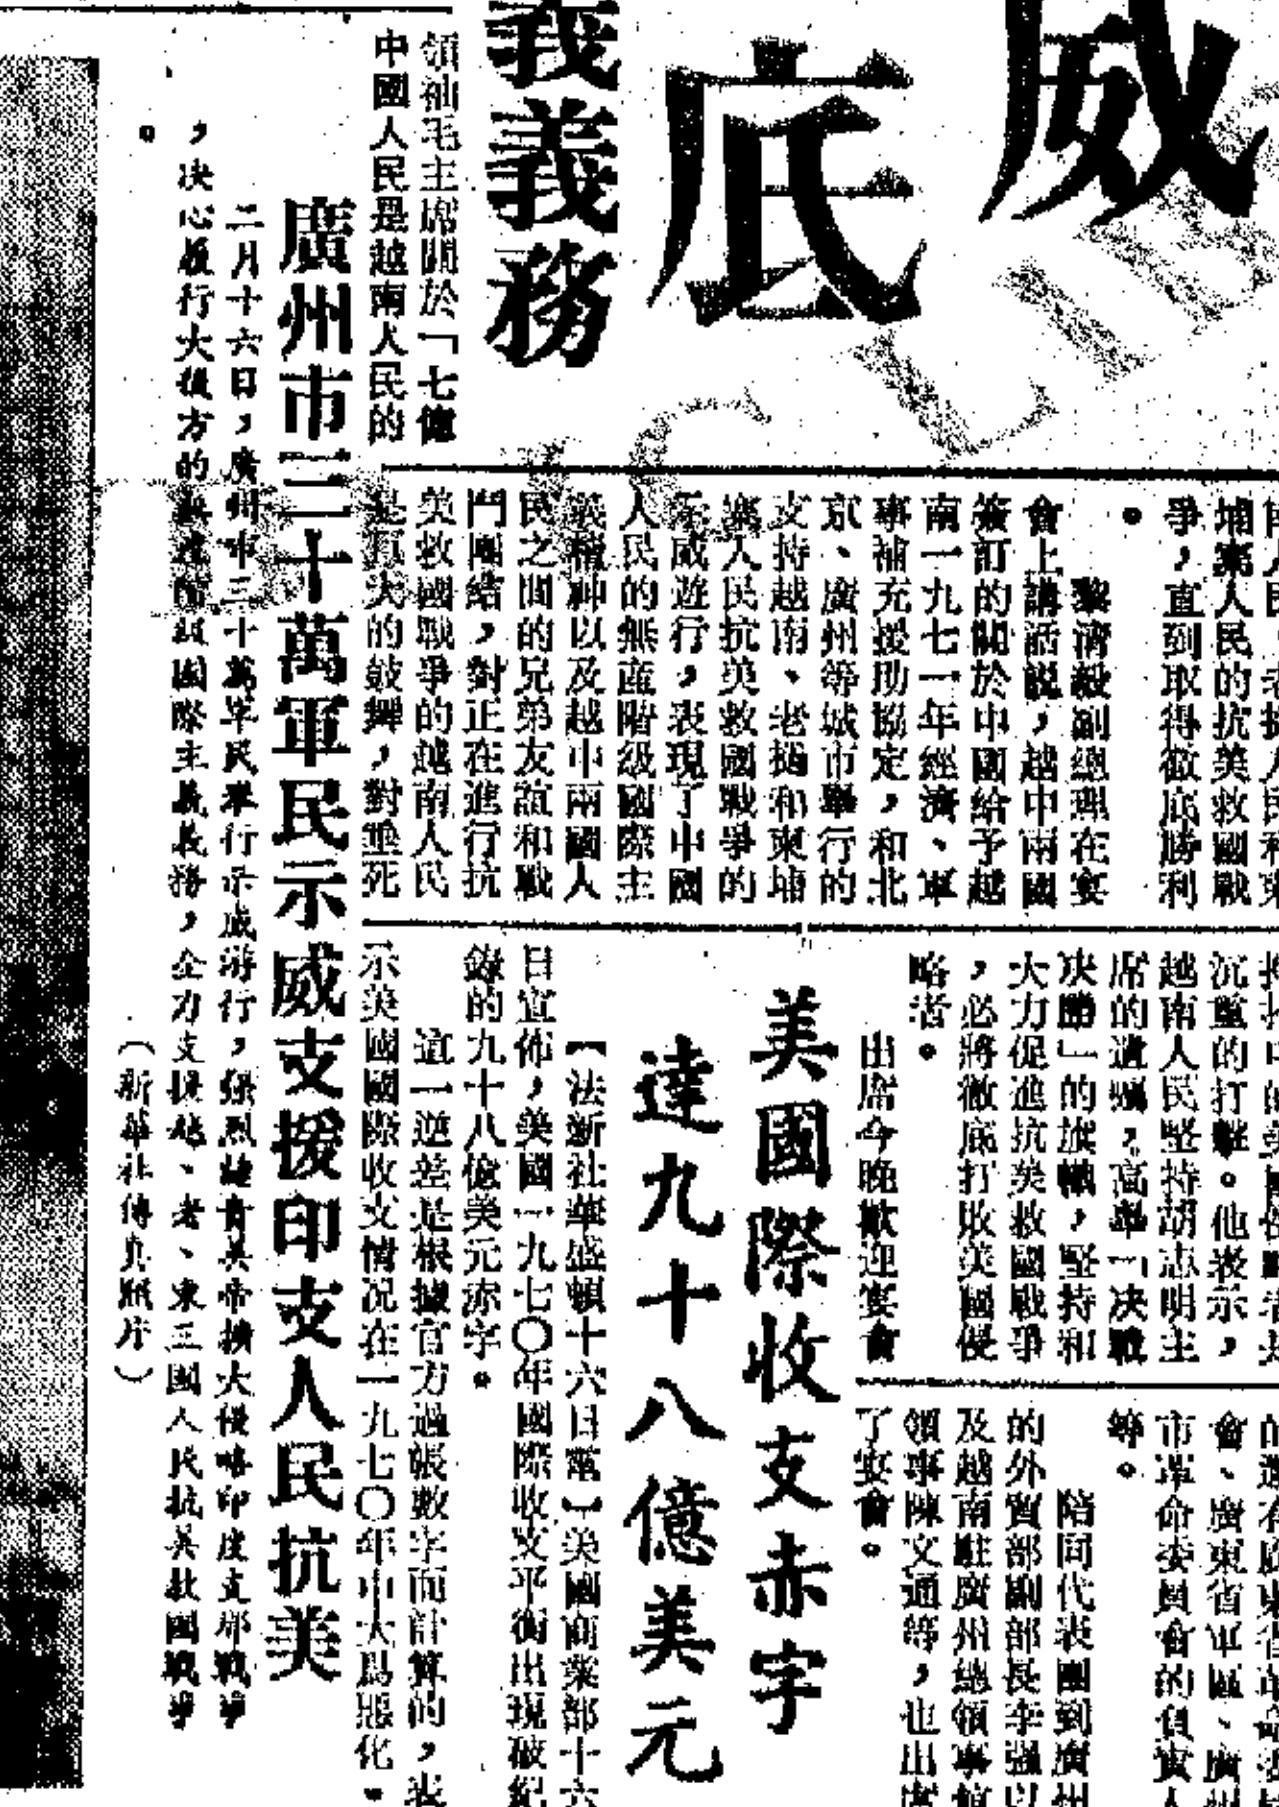 威
底
義義務
領袖毛主席關於「七億
中國人民是越南人民的
埔寨人民的抗美救國戰
爭，直到取得徹底勝利
。
黎濟毅副總理在宴
會上講話說，越中兩國
簽訂的關於中國給予越
南一九七一年經濟、軍
事補充援助協定，和北
京、廣州等城市舉行的
支持越南、老撾和柬埔
寨人民抗美救國戰爭的
示威遊行，表現了中國
人民的無產階級國際主
義精神以及越中兩國人
民之間的兄弟友誼和戰
鬥團結，對正在進行抗
美救國戰爭的越南人民
是巨大的鼓舞，對垂死
沉重的打擊。他表示，
越南人民堅持胡志明主
席的遺囑，高舉「决戰
决勝」的旗幟，堅持和
大力促進抗美救國戰爭
，必將徹底打敗美國侵
略者。
出席今晚歡迎宴會
會、廣東省軍區、廣州
市革命委員會的負責人
等。
陪同代表團到廣州
的外貿部副部長李強以
及越南駐廣州總領事館
領事陳文通等，也出席
了宴會。
美國際收支赤字
達九十八億美元
【法新社華盛頓十六日電】美國商業部十六
日宣佈，美國一九七〇年國際收支平衡出現破紀
錄的九十八億美元赤字。
這一逆差是根據官方過帳數字而計算的，表
示美國國際收支情况在一九七〇年中大爲惡化。
廣州市三十萬軍民示威支援印支人民抗美
二月十六日，廣州市三十萬軍民舉行示威游行，强烈譴責美帝擴大侵略印度支那戰爭
，决心履行大後方的無產階級國際主義義務，全力支援越、老、柬三國人民抗美救國戰爭
。
（新華社傳真照片）